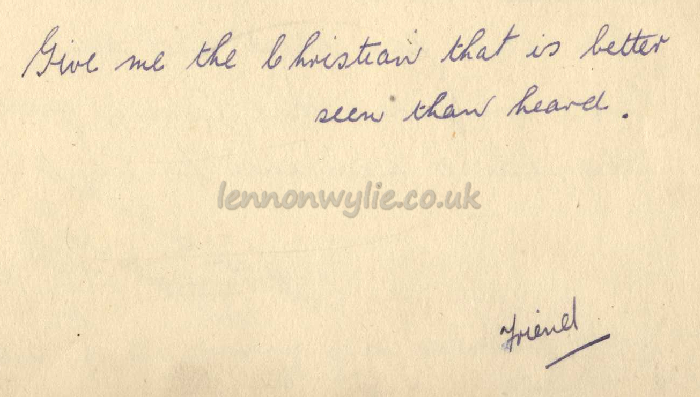 Give me the Christian that is better
seen than heard.
lennonwylie.co.uk
Friend